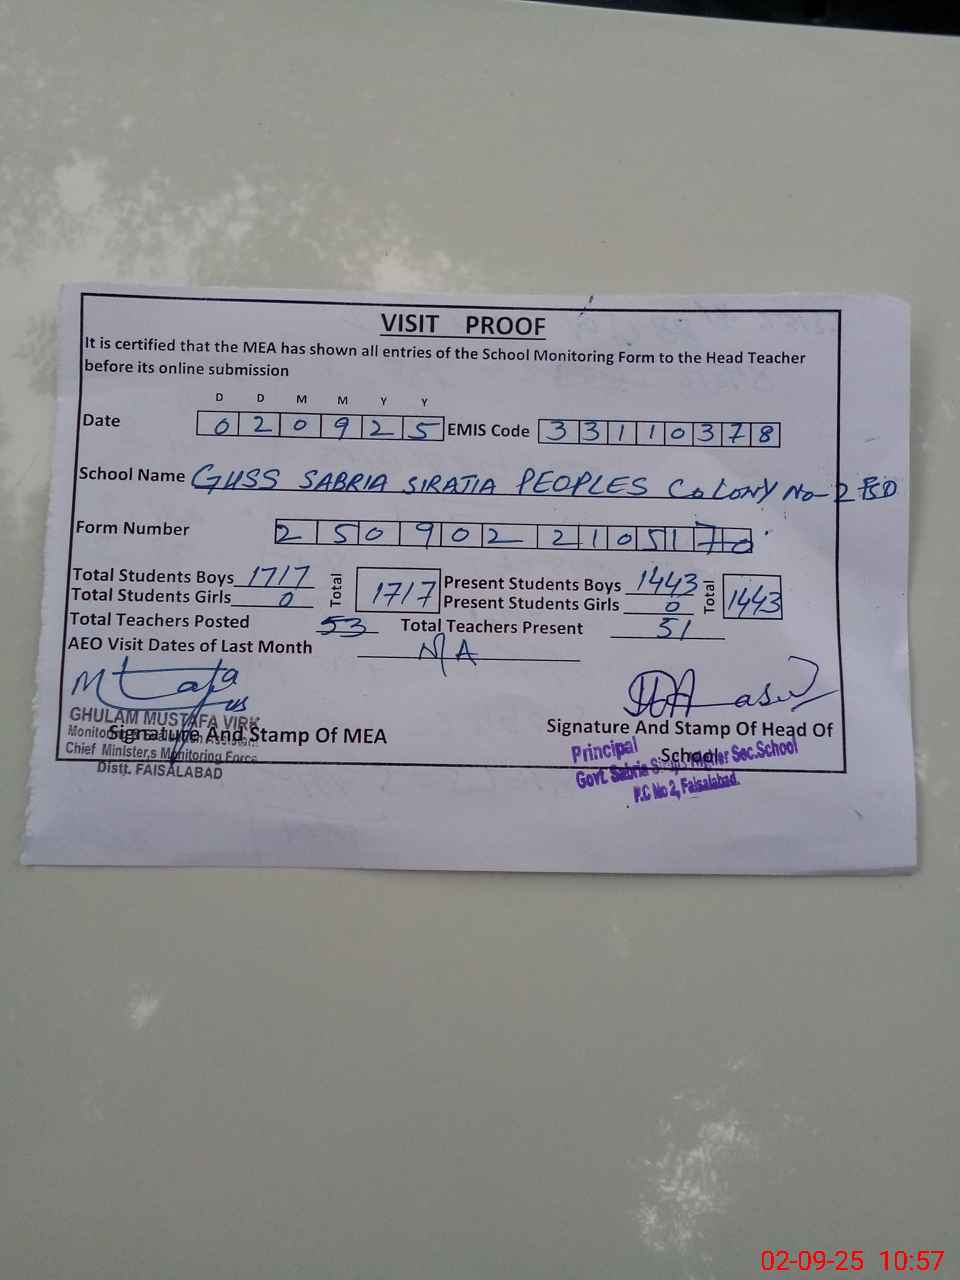 VISIT PROOF
It is certified that the MEA has shown all entries of the School Monitoring Form to the Head Teacher
before its online submission
D D M M Y Y
Date 0 2 0 9 2 5 EMIS Code 3 3 1 1 0 3 7 8
School Name GHSS SABRIA SIRAJIA PEOPLES COLONY No-2 FSD
Form Number 2 5 0 9 0 2 2 1 0 5 1 7 0
Total Students Boys 1717 Total 1717 Present Students Boys 1443 Total 1443
Total Students Girls 0 Present Students Girls 0
Total Teachers Posted 53 Total Teachers Present 51
AEO Visit Dates of Last Month N/A
GHULAM MUSTAFA VIRK
Signature And Stamp Of MEA
Chief Minister,s Monitoring Force
Distt. FAISALABAD
Signature And Stamp Of Head Of
School
Principal
Govt. Sabria Sec.School
P.C No 2, Faisalabad.
02-09-25 10:57